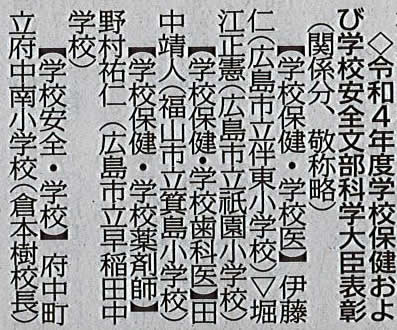 ◇令和4年度学校保健およ
び学校安全文部科学大臣表彰
（関係分、敬称略）
【学校保健・学校医】伊藤
仁（広島市立伴東小学校）▽堀
江正憲（広島市立祇園小学校）
【学校保健・学校歯科医】田
中靖人（福山市立箕島小学校）
【学校保健・学校薬剤師】
野村祐仁（広島市立早稲田中
学校）
【学校安全・学校】府中町
立府中南小学校（倉本樹校長）